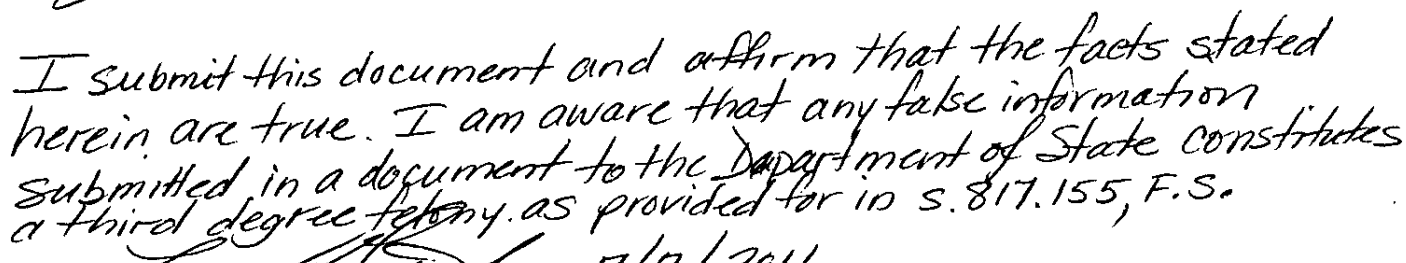 I submit this document and affirm that the facts stated
herein are true. I am aware that any false information
submitted in a document to the Department of State constitutes
a third degree felony as provided for in s.817.155, F.S.